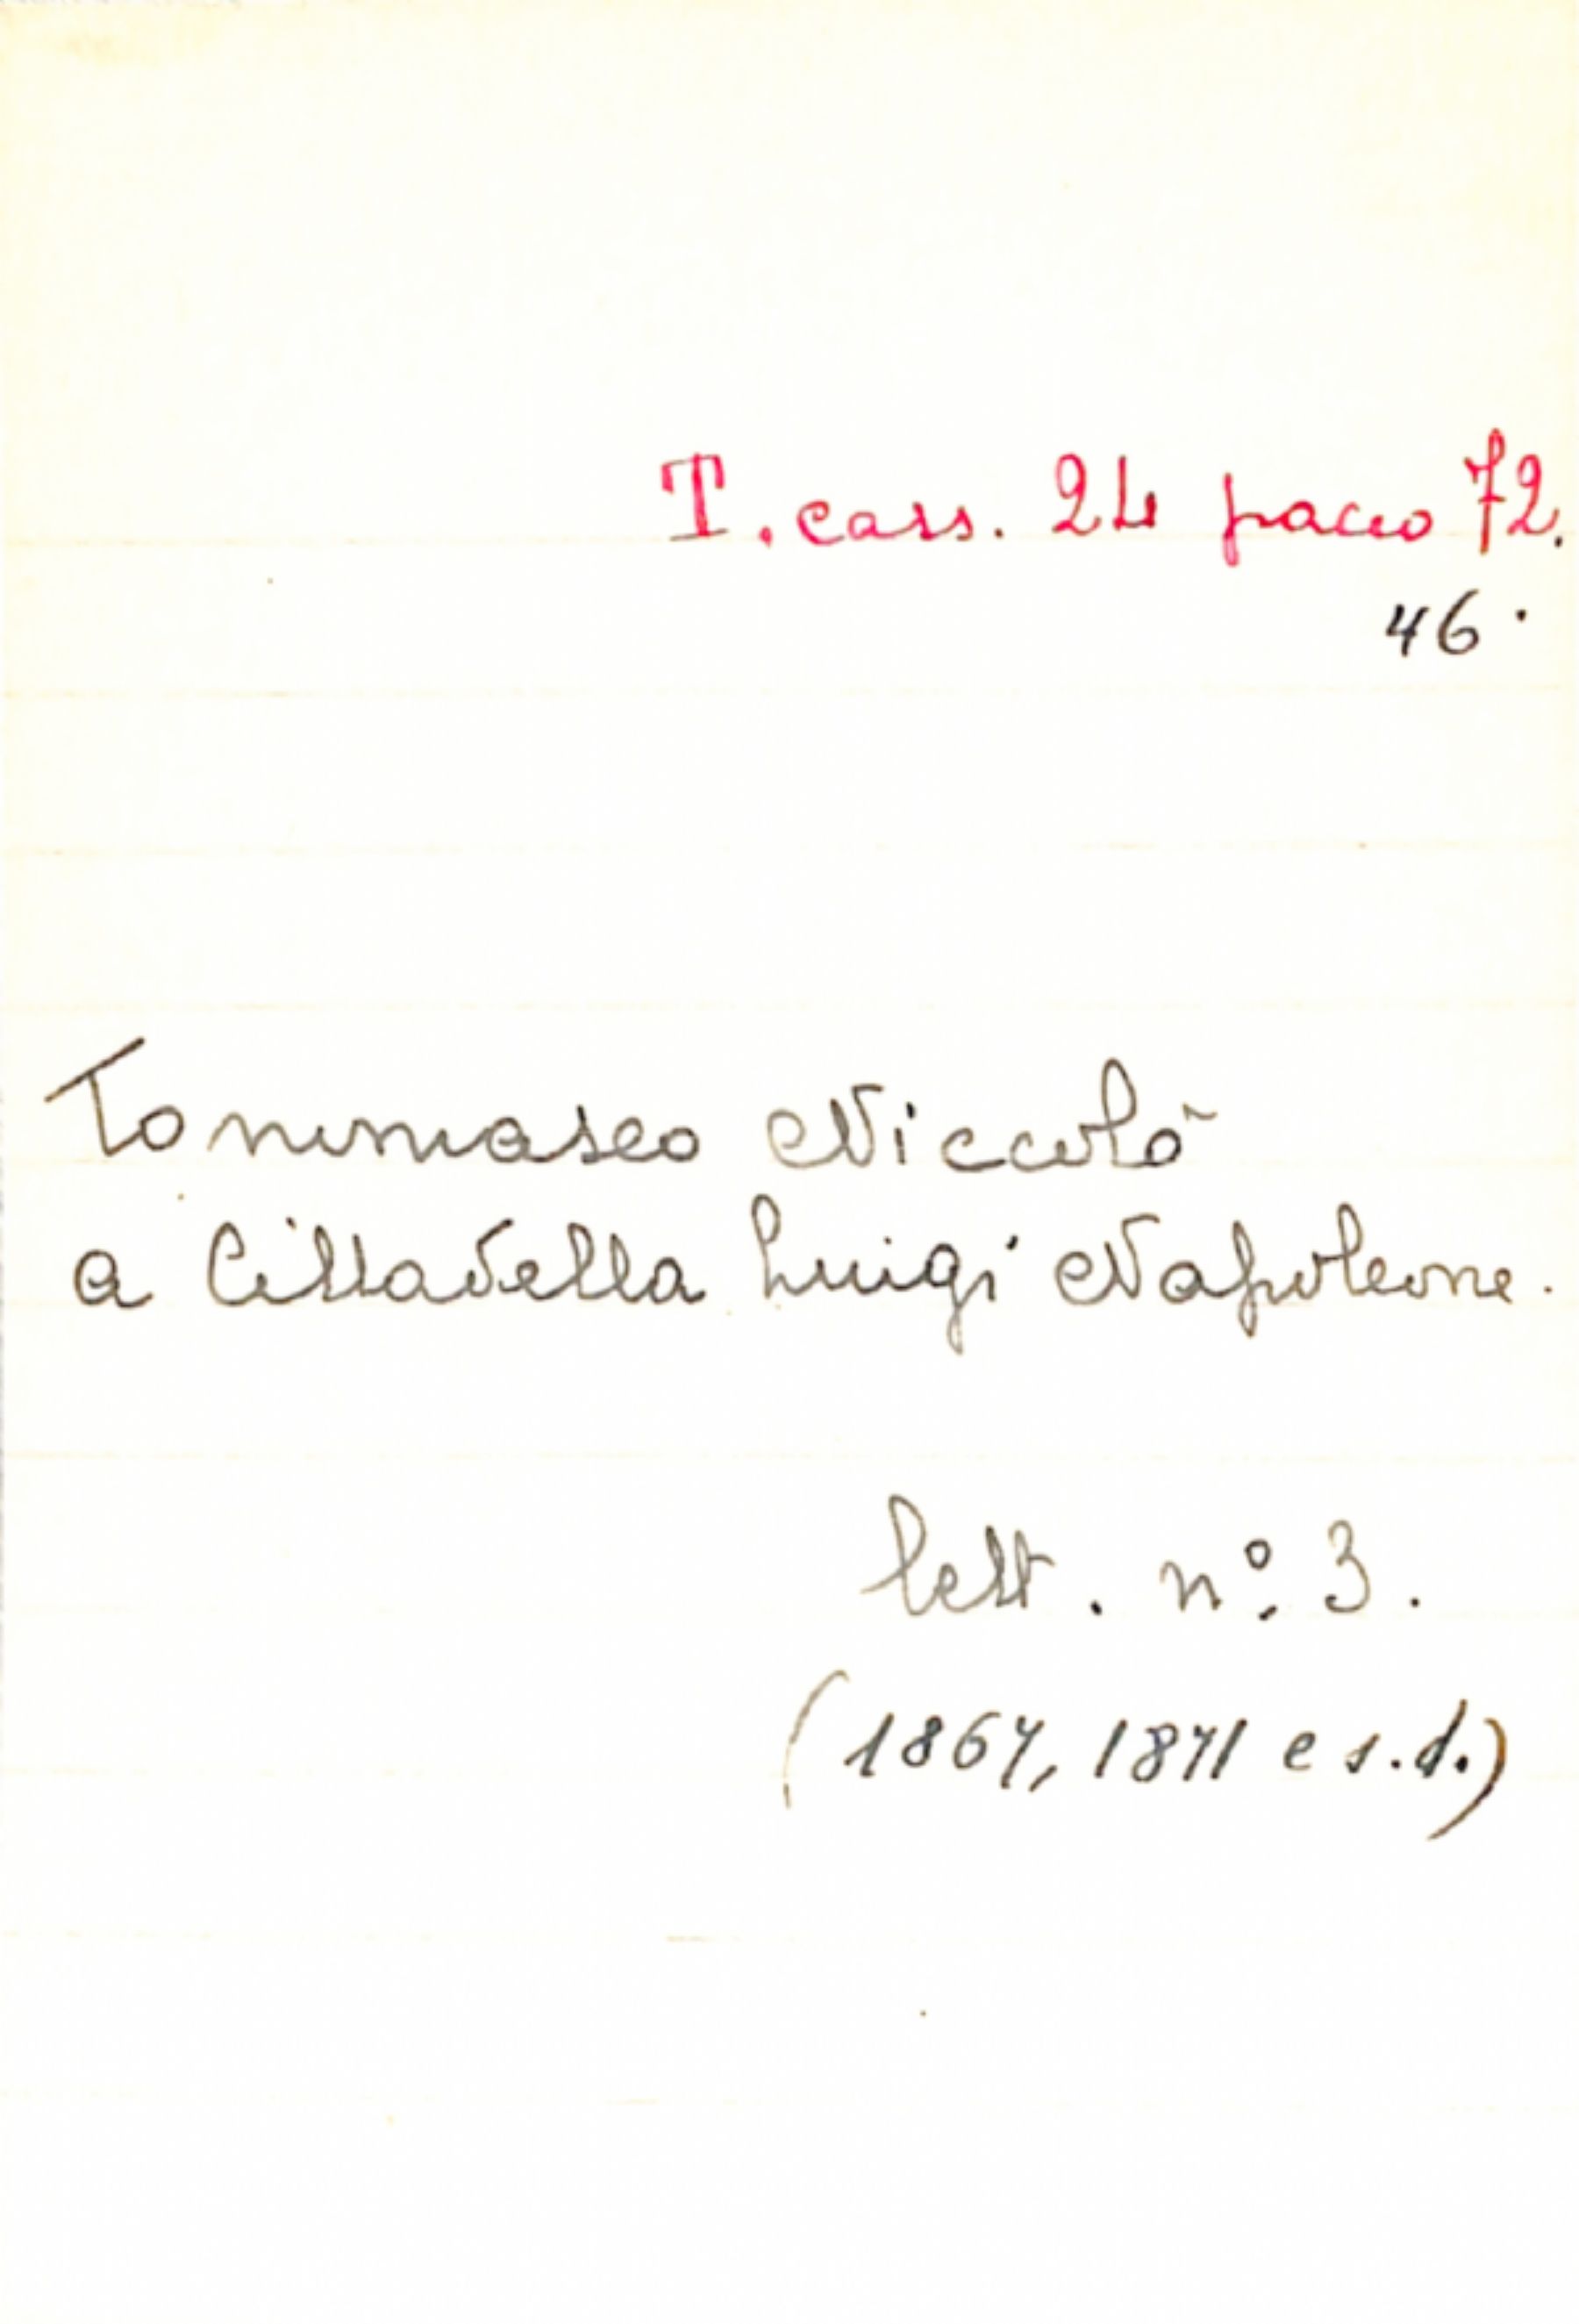 T. cass. 24 pacco 72.
46.
Tommaseo Niccolò
a Cittadella Luigi Napoleone.
lett. nº. 3.
(1867, 1871 e s.d.)